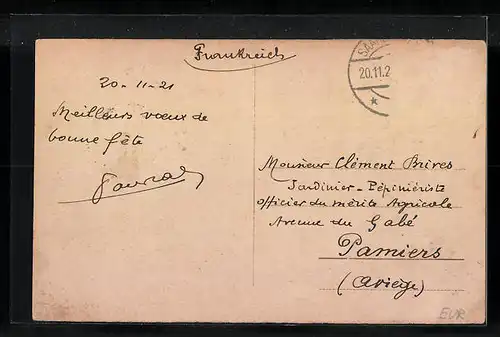 Frankreich
20-11-21
Meilleurs vœux de
bonne fête
SAA
20.11.2
Monsieur Clément Brires
Jardinier-Pépiniériste
Officier du mérite Agricole
Avenue du Gabé
Pamiers
(Ariège)
EUR